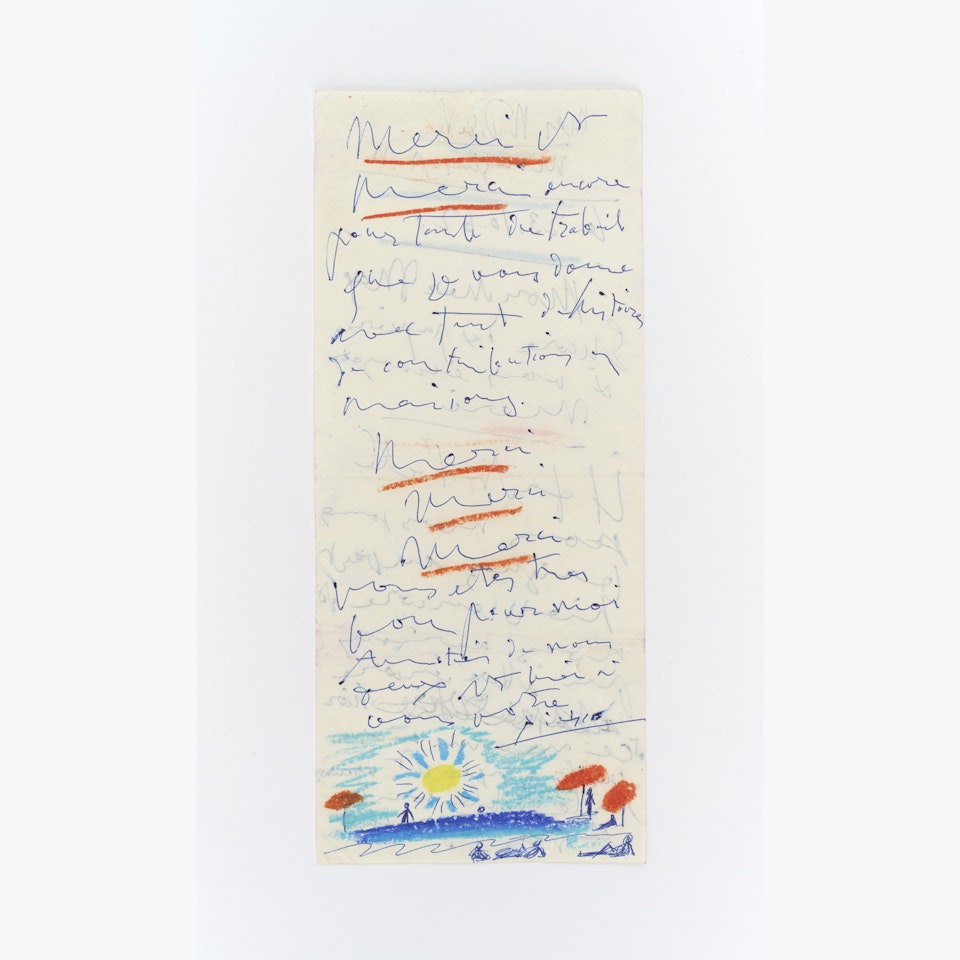 Merci et
Merci encore
pour tout du trabail
que je vous donne
avec tout d'histoires
de contributions en
maisons.
Merci
Merci
Merci
vous etes tres
bon pour moi
Amitiés de nous
deux et bien à
vous votre
Picasso